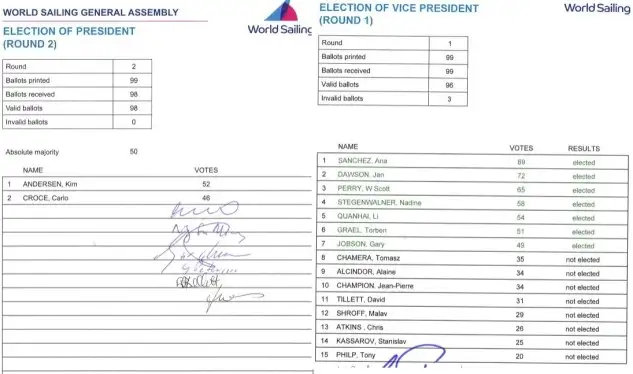 WORLD SAILING GENERAL ASSEMBLY
World Sailing
ELECTION OF PRESIDENT
(ROUND 2)
Round 2
Ballots printed 99
Ballots received 98
Valid ballots 98
Invalid ballots 0
Absolute majority 50
NAME VOTES
1 ANDERSEN, Kim 52
2 CROCE, Carlo 46
ELECTION OF VICE PRESIDENT
(ROUND 1)
World Sailing
Round 1
Ballots printed 99
Ballots received 99
Valid ballots 96
Invalid ballots 3
NAME VOTES RESULTS
1 SANCHEZ, Ana 89 elected
2 DAWSON, Jan 72 elected
3 PERRY, W Scott 65 elected
4 STEGENWALNER, Nadine 58 elected
5 QUANHAI, Li 54 elected
6 GRAEL, Torben 51 elected
7 JOBSON, Gary 49 elected
8 CHAMERA, Tomasz 35 not elected
9 ALCINDOR, Alaine 34 not elected
10 CHAMPION, Jean-Pierre 34 not elected
11 TILLETT, David 31 not elected
12 SHROFF, Malav 29 not elected
13 ATKINS , Chris 26 not elected
14 KASSAROV, Stanislav 25 not elected
15 PHILP, Tony 20 not elected